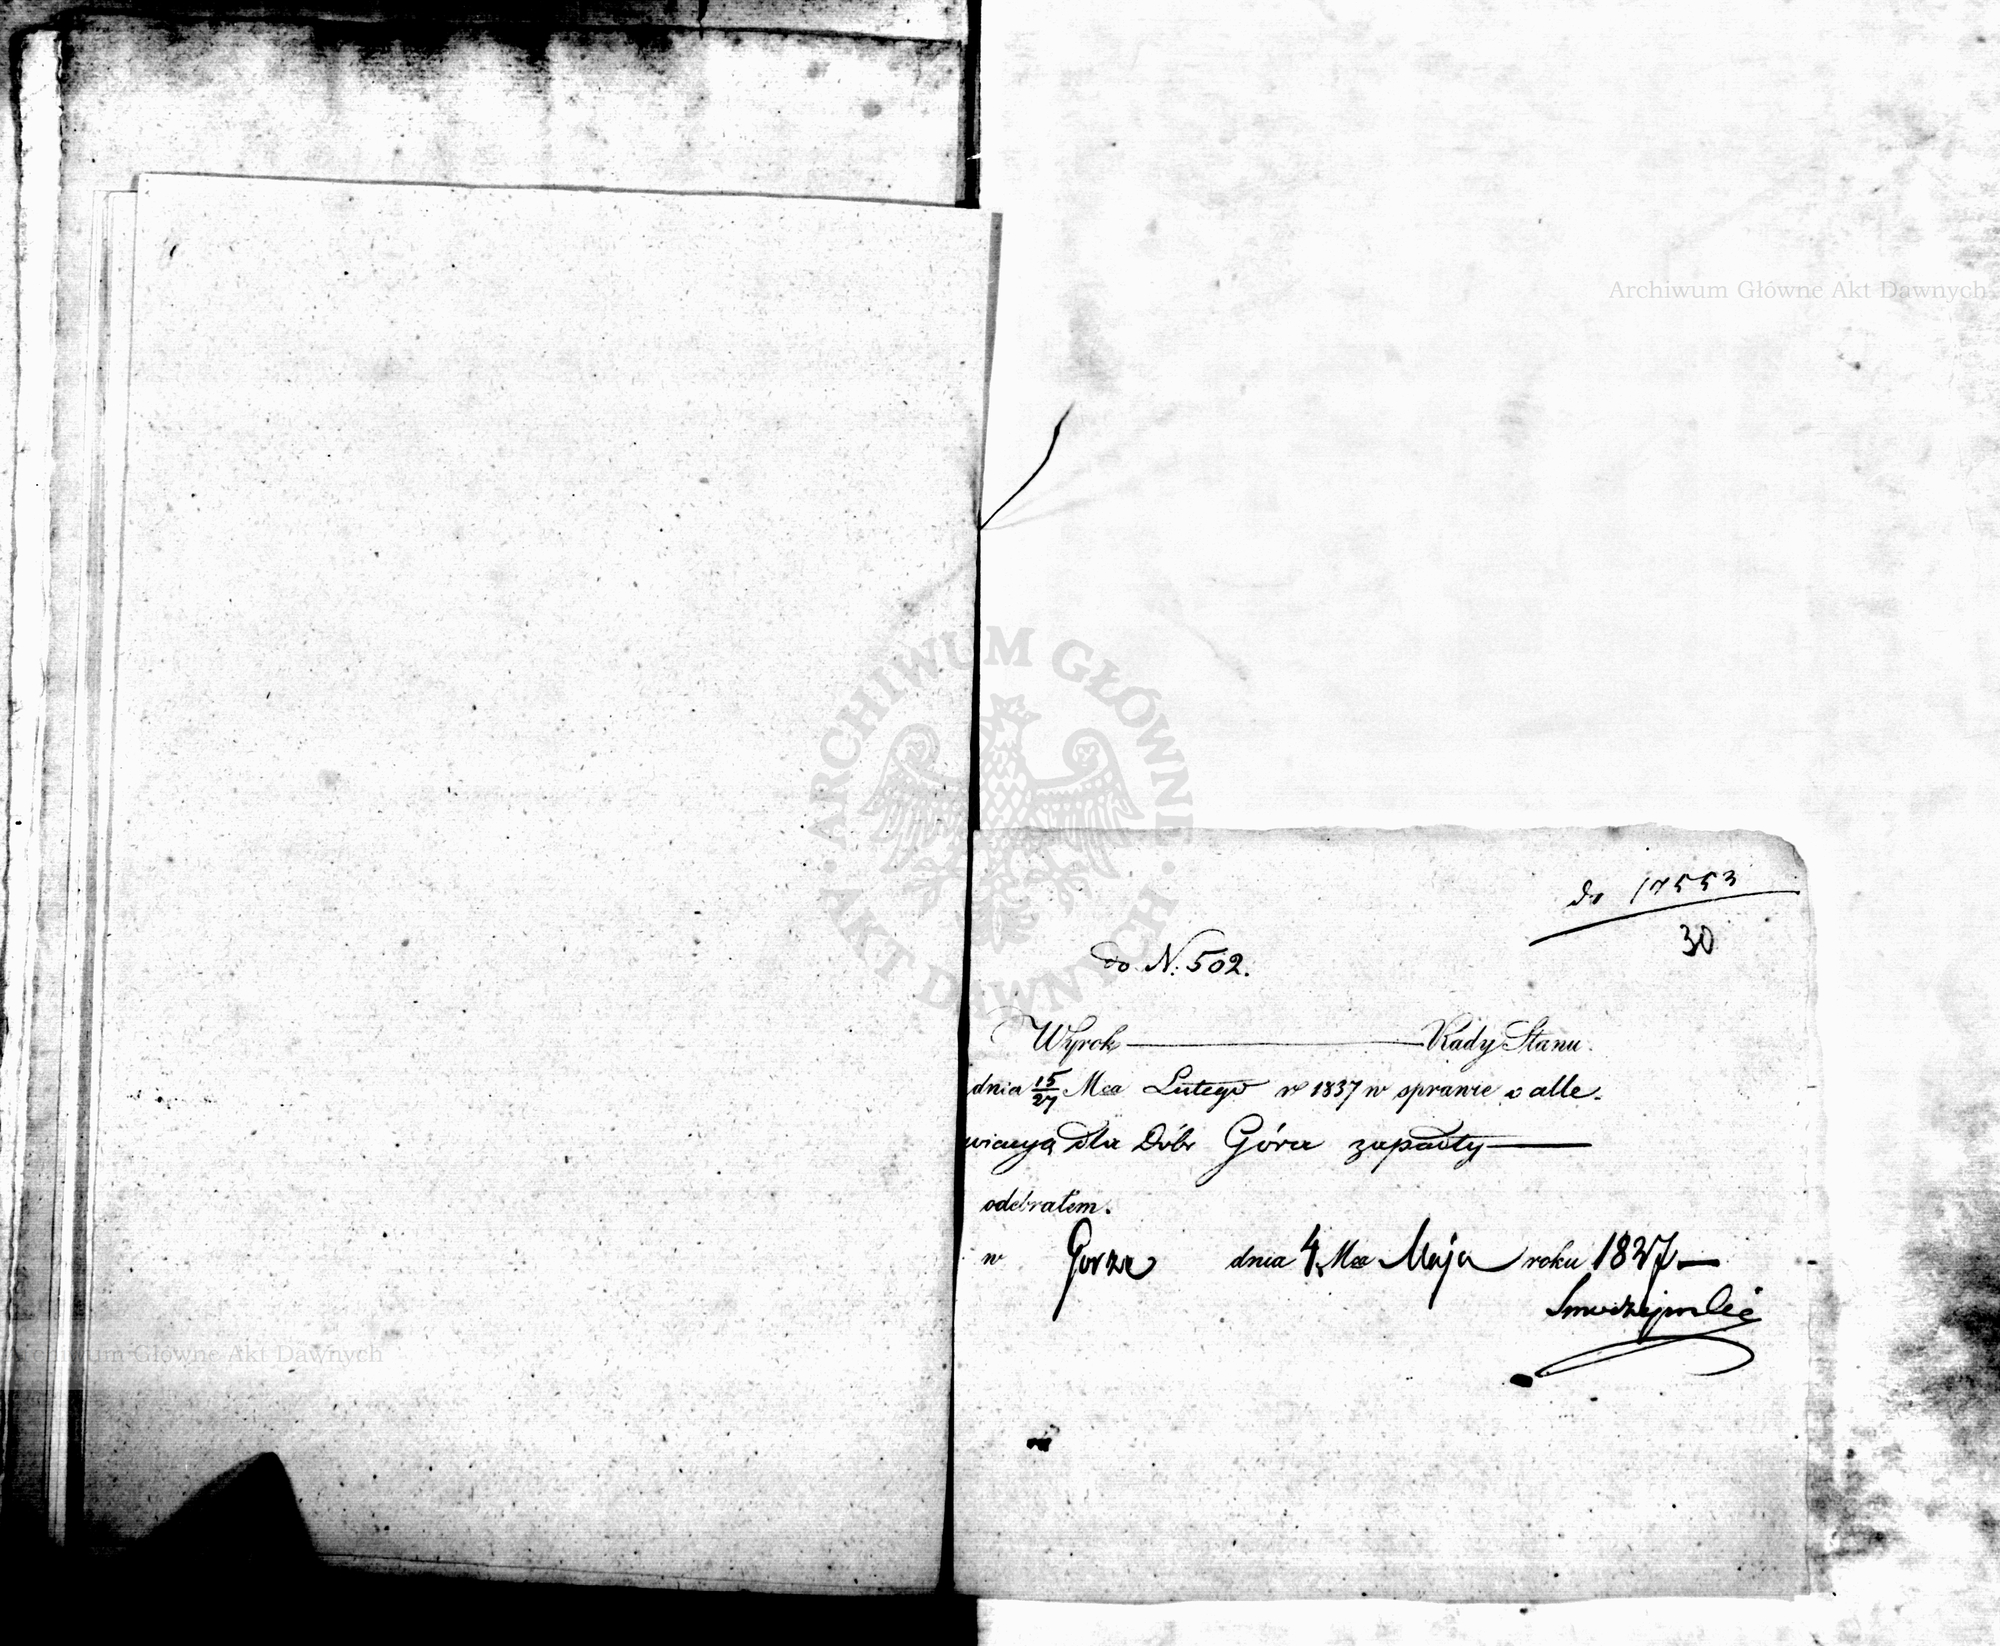 do 17553
30
do N: 502.
Wyrok Rady Stanu.
dnia 15/27 Mca Lutego r 1837 w sprawie o alle-
wiacyą dla Dóbr Góra zapadły
odebrałem.
w Gorze dnia 4 Mca Maja roku 1837
Archiwum Główne Akt Dawnych
Archiwum Główne Akt Dawnych
ARCHIWUM GŁÓWNE · AKT DAWNYCH ·